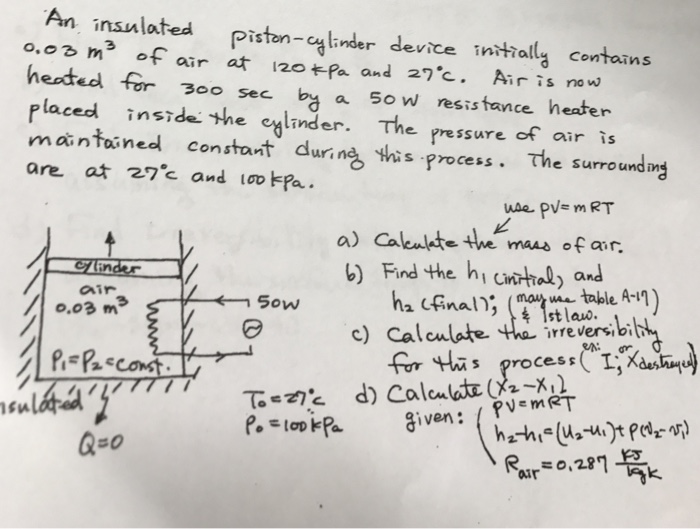 An insulated piston-cylinder device initially contains
0.03 m³ of air at 120 kPa and 27°c. Air is now
heated for 300 sec by a 50W resistance heater
placed inside the cylinder. The pressure of air is
maintained constant during this process. The surrounding
are at 27°c and 100 kPa.
use PV=mRT
a) Calculate the mass of air.
b) Find the h₁ (initial) and
h₂ (final); (may use table A-17)
& 1st law.
c) Calculate the irreversibility
for this process (ex: I; or Xdestroyed)
d) Calculate (X₂-X₁)
given: PV=mRT
h₂-h₁=(u₂-u₁)+P(v₂-v₁)
Rair=0.287 KJ/kgK
cylinder
air
0.03 m³
50W
P₁=P₂=const.
nsulated
Q=0
T₀=27°c
P₀=100kPa